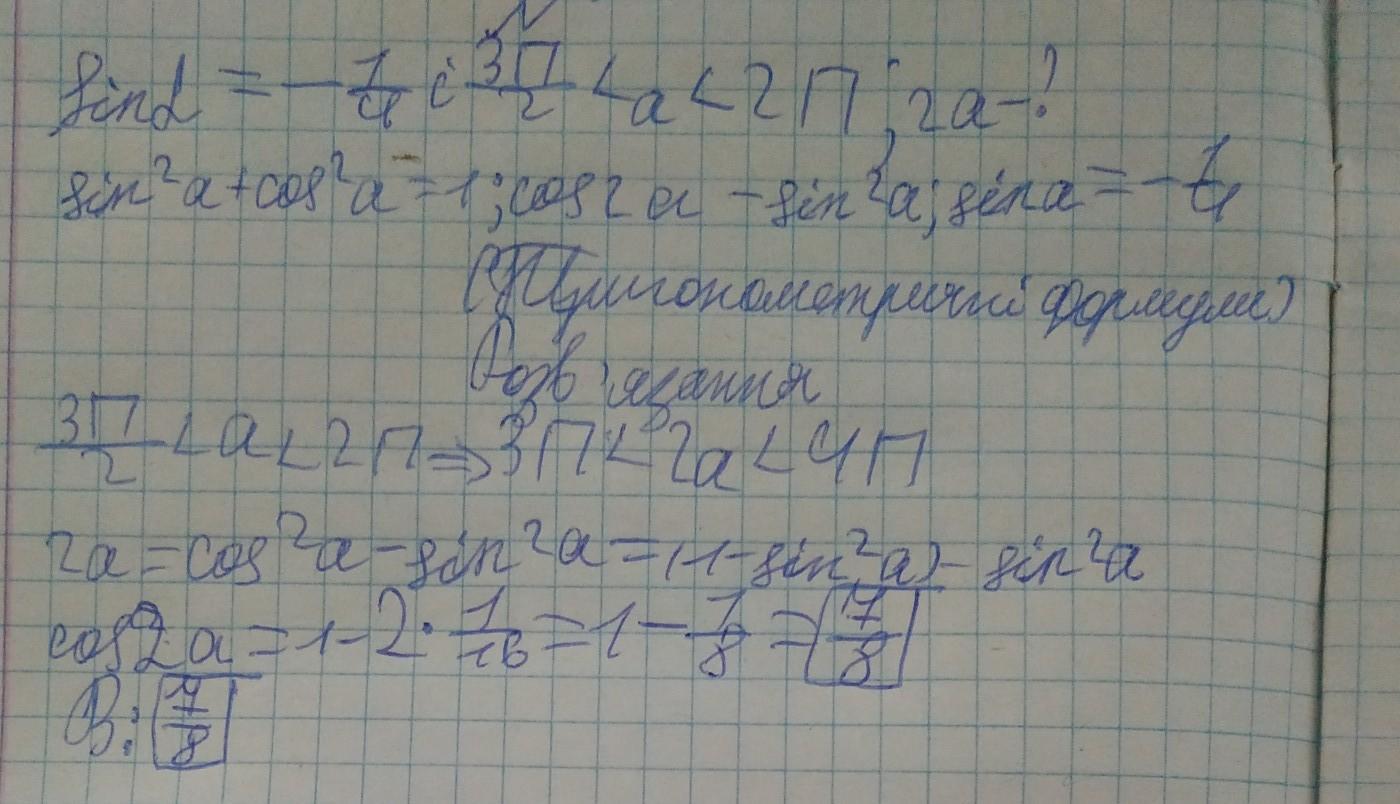 sinα = -1/4 і 3π/2 < a < 2π; 2a-?
sin²a + cos²a = 1; cos2a - sin²a; sina = -1/4
(Тригонометричні формули)
Розв'язання
3π/2 < a < 2π ⇒ 3π < 2a < 4π
2a = cos²a - sin²a = (1 - sin²a) - sin²a
cos2a = 1 - 2 · 1/16 = 1 - 1/8 = 7/8
В: 7/8